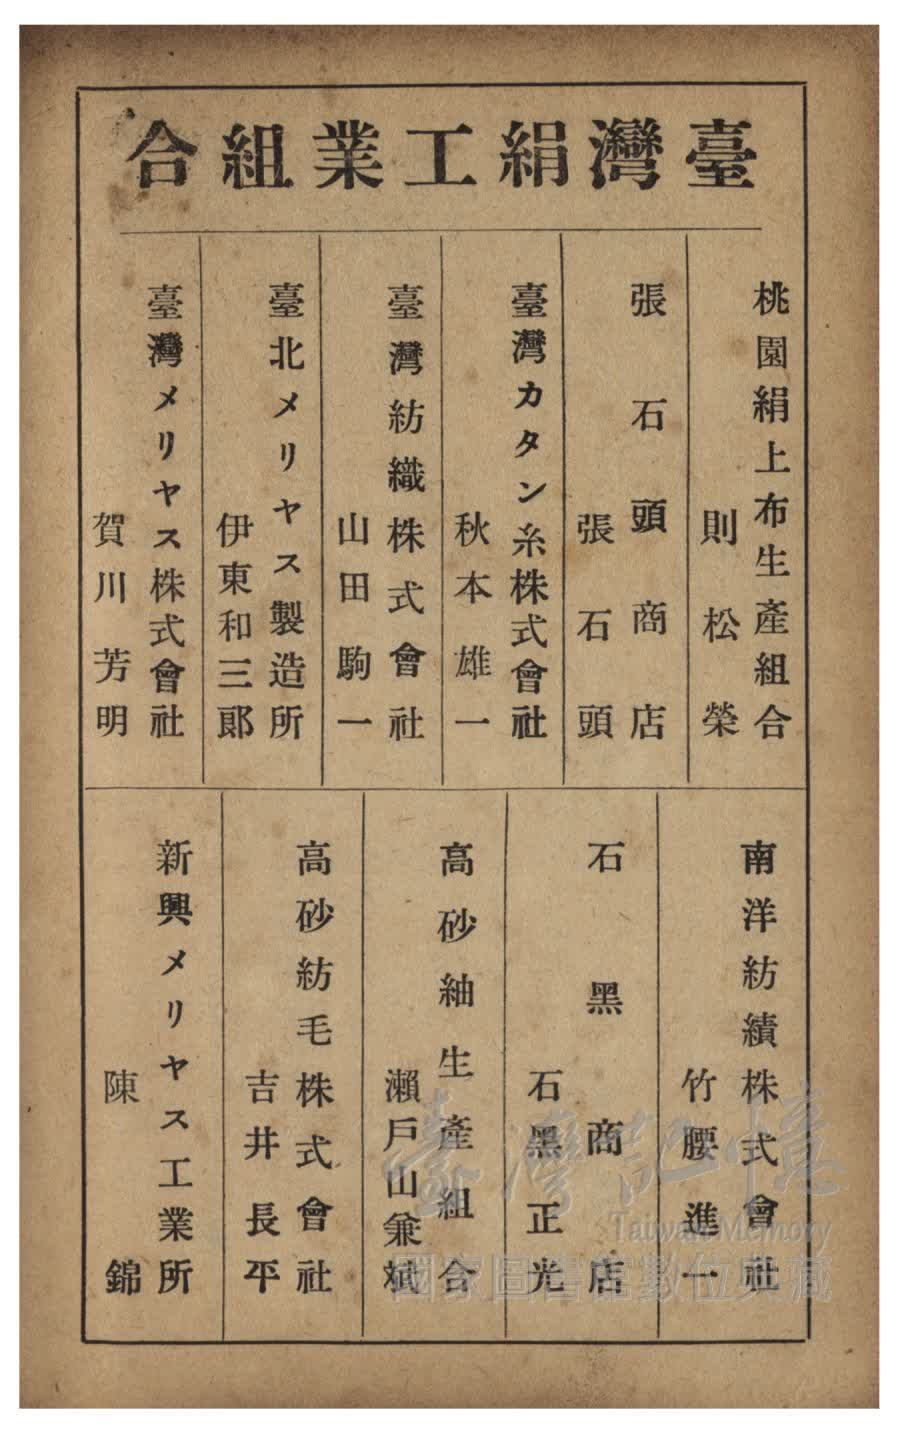 臺灣絹工業組合
桃園絹上布生產組合
則松榮
張石頭商店
張石頭
臺灣カタン糸株式會社
秋本雄一
臺灣紡織株式會社
山田駒一
臺北メリヤス製造所
伊東和三郎
臺灣メリヤス株式會社
賀川芳明
南洋紡績株式會社
竹腰進一
石黑商店
石黑正光
高砂紬生產組合
瀨戶山兼斌
高砂紡毛株式會社
吉井長平
新興メリヤス工業所
陳錦
臺灣記憶
Taiwan Memory
國家圖書館數位典藏